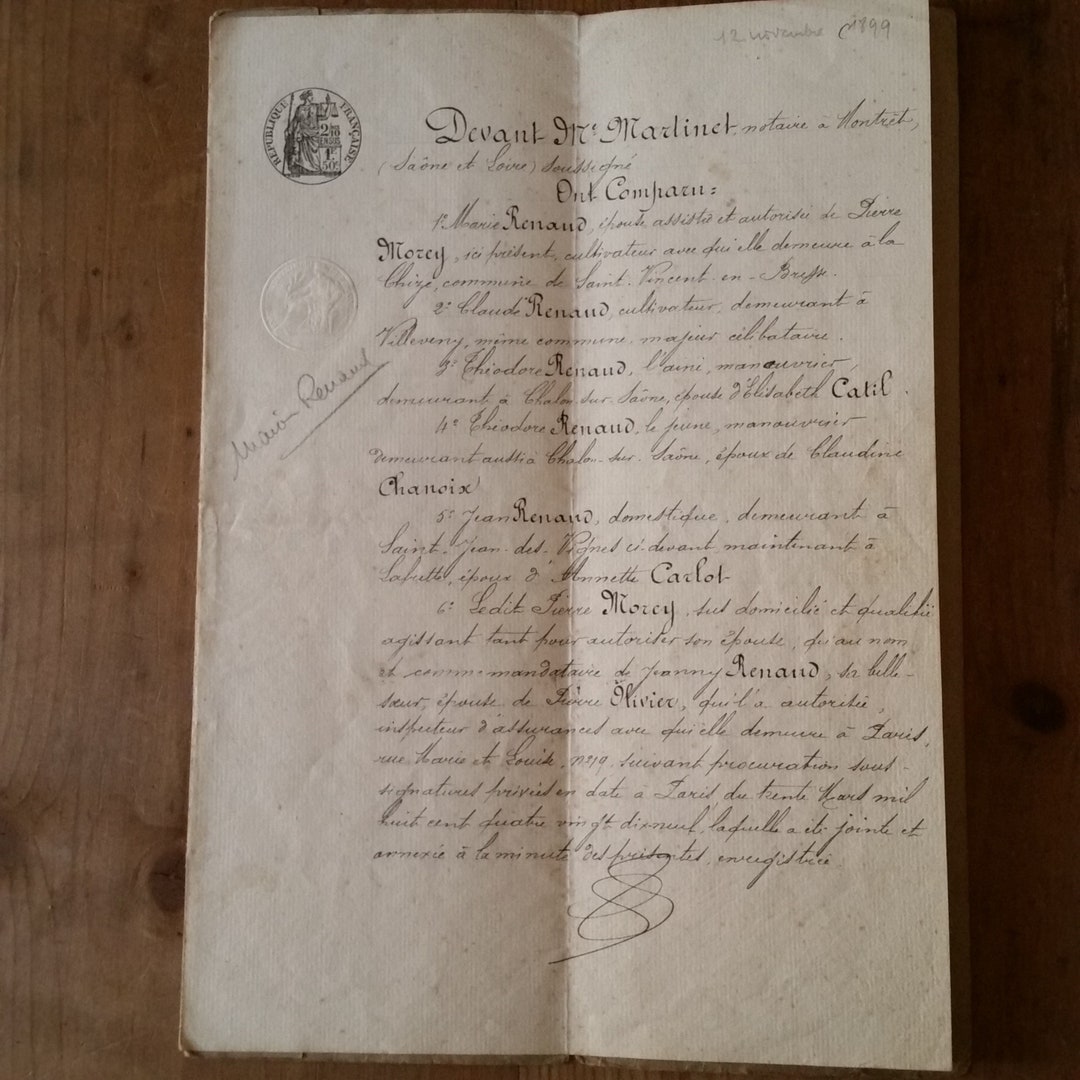 12 novembre 1899
RÉPUBLIQUE FRANÇAISE
2/10
EN SUS
1F
50c
Devant Me Martinet, notaire à Montret,
(Saône et Loire) soussigné
Ont Comparu:
1° Marie Renaud, épouse assistée et autorisée de Pierre
Morey, ici présent, cultivateur avec qui elle demeure à la
Chize, commune de Saint-Vincent-en-Bresse.
2° Claude Renaud, cultivateur, demeurant à
Villeveny, même commune, majeur célibataire.
3° Théodore Renaud, l'ainé, manœuvrier,
demeurant à Chalon-sur-Saône, époux d'Elisabeth Catil.
4° Théodore Renaud, le jeune, manouvrier
demeurant aussi à Chalon-sur-Saône, époux de Claudine
Chanoix
5° Jean Renaud, domestique, demeurant à
Saint-Jean-des-Vignes ci-devant maintenant à
époux d'Annette Carlot
6° Ledit Pierre Morey, sus domicilié et qualifié
agissant tant pour autoriser son épouse, qu'au nom
et comme mandataire de Jeanny Renaud, sa belle-
sœur, épouse de Pierre Olivier, qui l'a autorisée,
inspecteur d'assurances avec qui elle demeure à Paris,
rue Marie et Louise, n° 19, suivant procuration sous-
signatures privées en date à Paris du trente Mars mil
huit cent quatre vingt dix neuf, laquelle a été jointe et
annexée à la minute des présentes, enregistrée.
Renaud